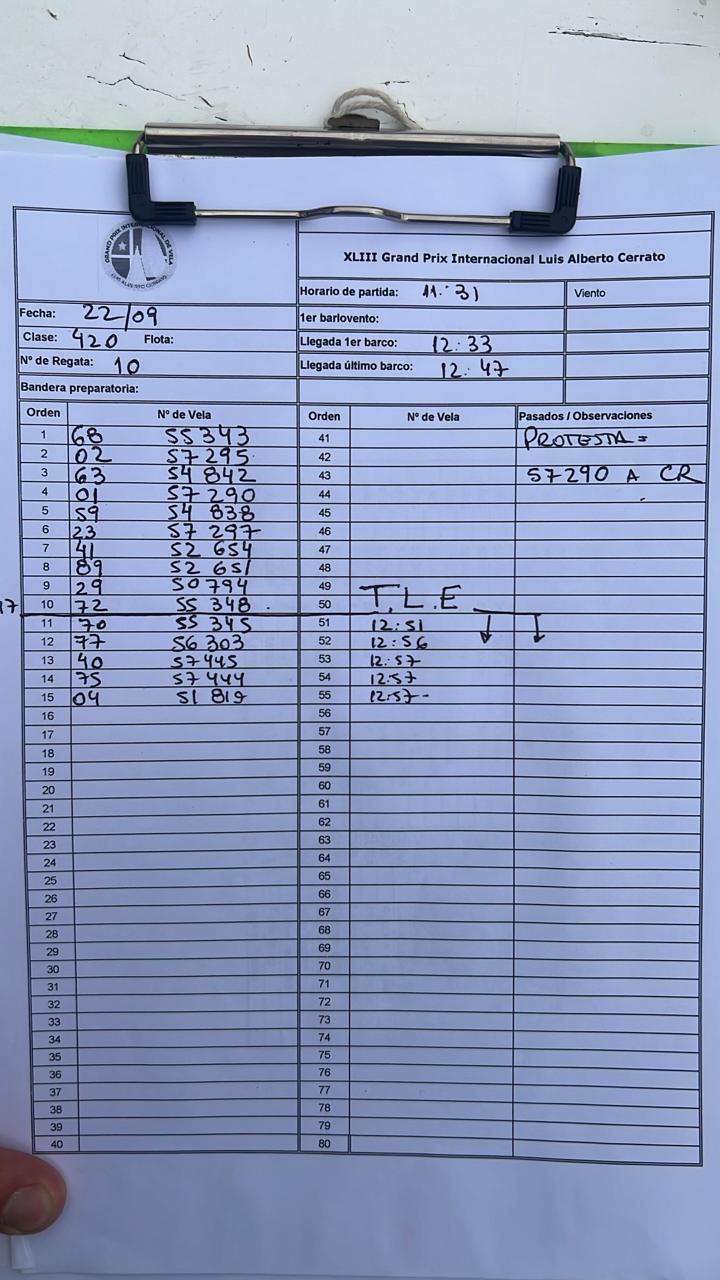 GRAND PRIX INTERNACIONAL DE VELA
LUIS ALBERTO CERRATO
XLIII Grand Prix Internacional Luis Alberto Cerrato
Horario de partida: 11:31 Viento
Fecha: 22/09
1er barlovento:
Clase: 420 Flota:
Llegada 1er barco: 12:33
Nº de Regata: 10
Llegada último barco: 12:47
Bandera preparatoria:
Orden Nº de Vela Orden Nº de Vela Pasados / Observaciones
1 68 55343 41 PROTESTA=
2 02 57295 42
3 63 54842 43 57290 A CR
4 01 57290 44
5 59 54838 45
6 23 57297 46
7 41 52654 47
8 89 52651 48
9 29 50794 49
10 72 55348 50 T.L.E
11 70 55345 51 12:51
12 77 56303 52 12:56
13 40 57445 53 12:57
14 75 57444 54 12:57
15 04 51819 55 12:57-
16 56
17 57
18 58
19 59
20 60
21 61
22 62
23 63
24 64
25 65
26 66
27 67
28 68
29 69
30 70
31 71
32 72
33 73
34 74
35 75
36 76
37 77
38 78
39 79
40 80